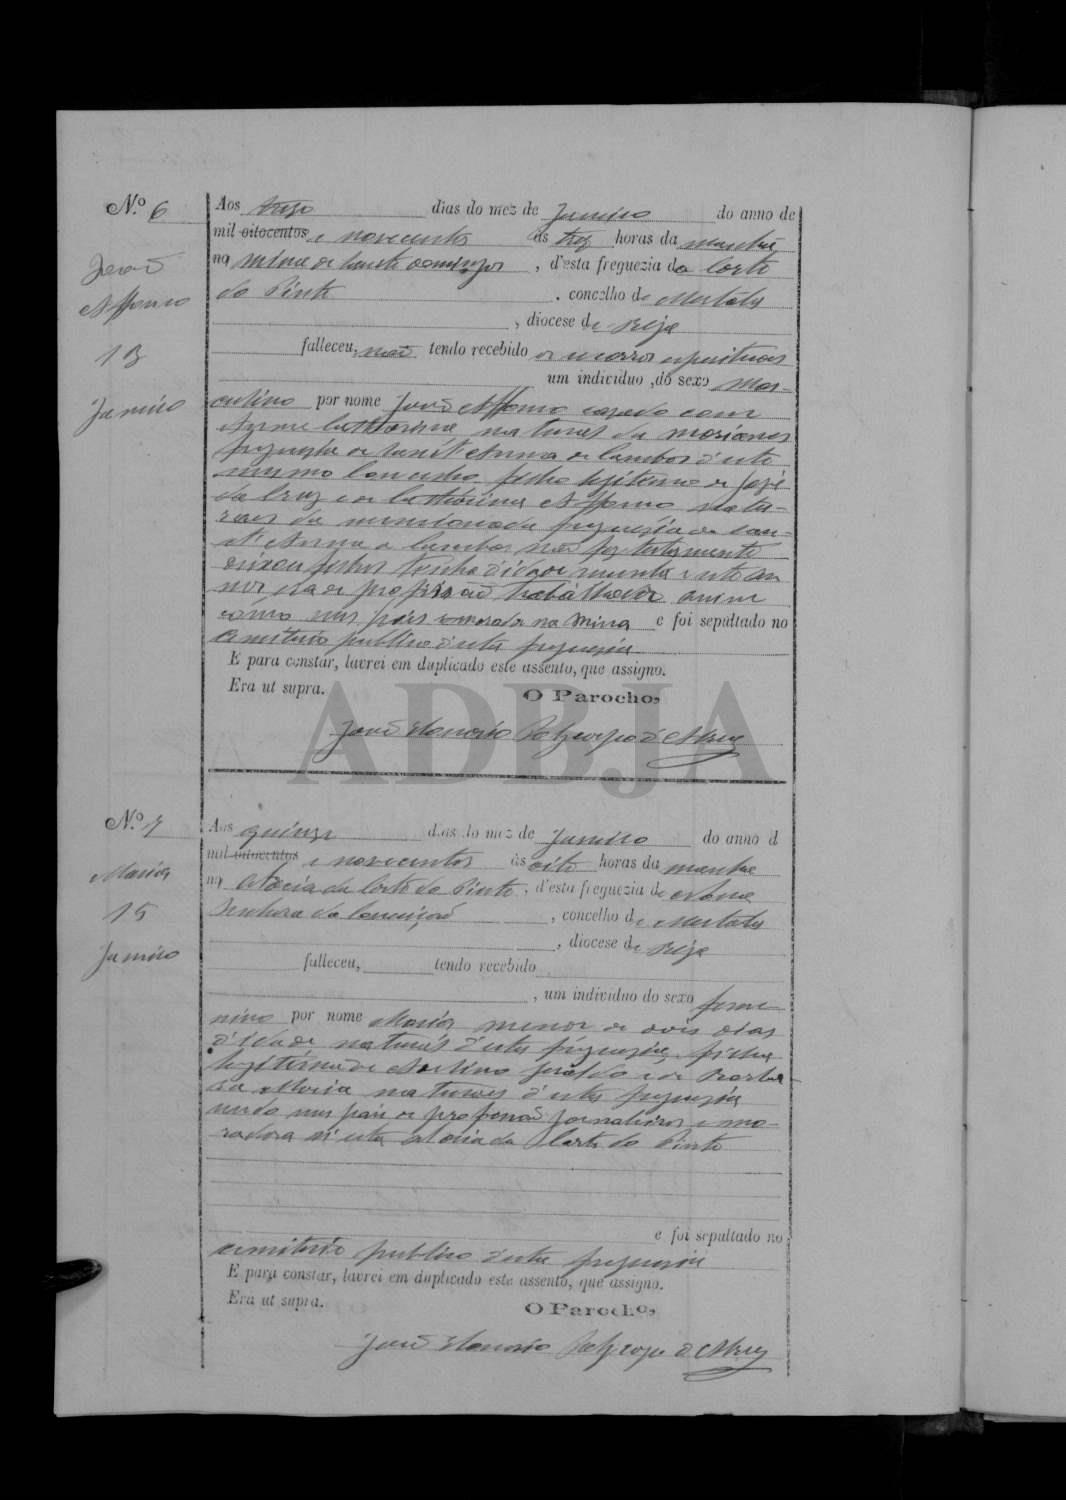 N.º 6
João
Affonso
13
Janeiro
Aos treze dias do mez de Janeiro do anno de
mil oitocentos e novecentos ás trez horas da manhã
na Mina de Sam Domingos, d'esta freguezia da Corte
do Pinto, concelho de Mertola
, diocese de Beja
falleceu, não tendo recebido os socorros espirituaes
um individuo, do sexo mas-
culino por nome João Affonso casado com
Anna Catharina natural de
freguezia de Sant'Anna de Cambas d'este
mesmo Concelho filho legitimo de José
da Cruz e de Catharina Affonso natu-
raes da mencionada freguezia de San-
t'Anna de Cambas não fez testamento
deixou filhos tinha d'idade e oito an
nos era de profissão trabalhador assim
como seus pais morador na Mina e foi sepultado no
cemiterio publico d'esta freguezia
E para constar, lavrei em duplicado este assento, que assigno.
Era ut supra.
O Parocho,
João d'Abreu
ADBJA
N.º 7
Maria
15
Janeiro
Aos quinze dias do mez de Janeiro do anno d
mil oitocentos e novecentos ás oito horas da manhã
na Aldeia da Corte do Pinto, d'esta freguezia de Nossa
Senhora da Conceição, concelho de Mertola
, diocese de Beja
falleceu, tendo recebido
, um individuo do sexo feme-
nino por nome Maria menor de dois dias
d'idade natural d'esta freguezia filha
legitima de e de Barba-
ra Maria naturaes d'esta freguezia
sendo seus pais de profissão jornaleiros e mo-
radores n'esta aldeia da Corte do Pinto
e foi sepultado no
cemiterio publico d'esta freguezia
E para constar, lavrei em duplicado este assento, que assigno.
Era ut supra.
O Parocho,
João d'Abreu